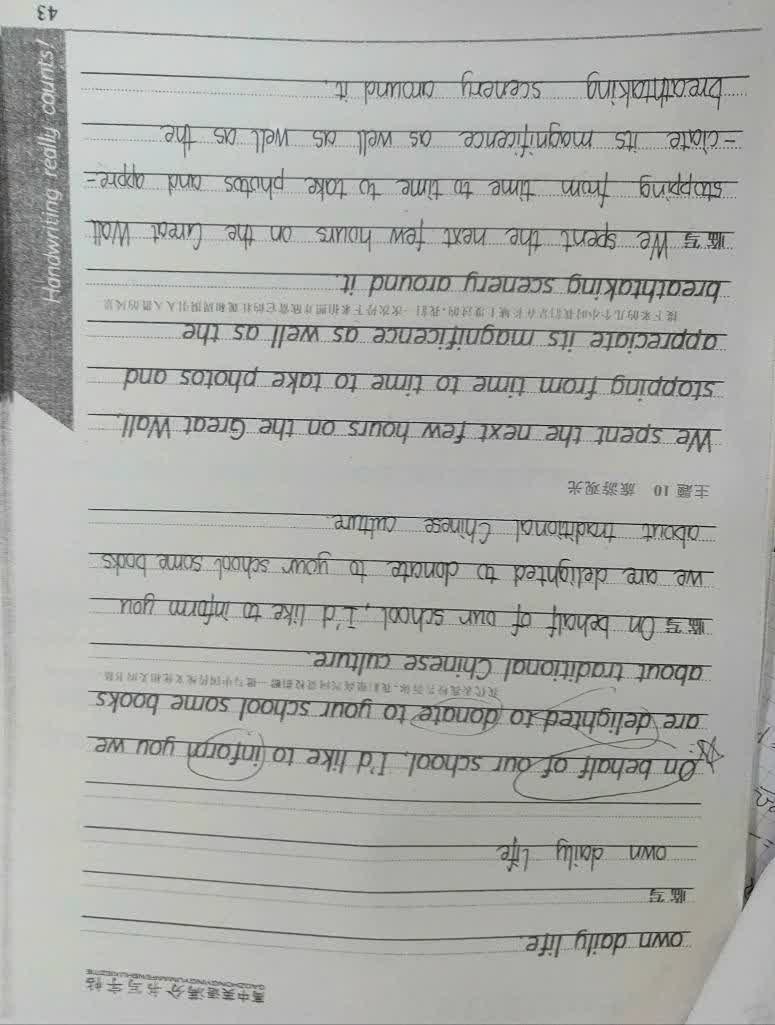 高中英语满分书写字帖
GAOZHONGYINGYUMANFENSHUXIEZITIE
own daily life.
临写
own daily life
On behalf of our school, I'd like to inform you we
are delighted to donate to your school some books
about traditional Chinese culture.
临写 On behalf of our school, I'd like to inform you
we are delighted to donate to your school some books
about traditional Chinese culture.
主题 10 旅游观光
We spent the next few hours on the Great Wall,
stopping from time to time to take photos and
appreciate its magnificence as well as the
接下来的几个小时我们是在长城上度过的,我们一次次停下来拍照并欣赏它的壮观和周围引人入胜的风景
breathtaking scenery around it.
临写 We spent the next few hours on the Great Wall
stopping from time to time to take photos and appre-
-ciate its magnificence as well as well as the
breathtaking scenery around it.
Handwriting really counts!
43